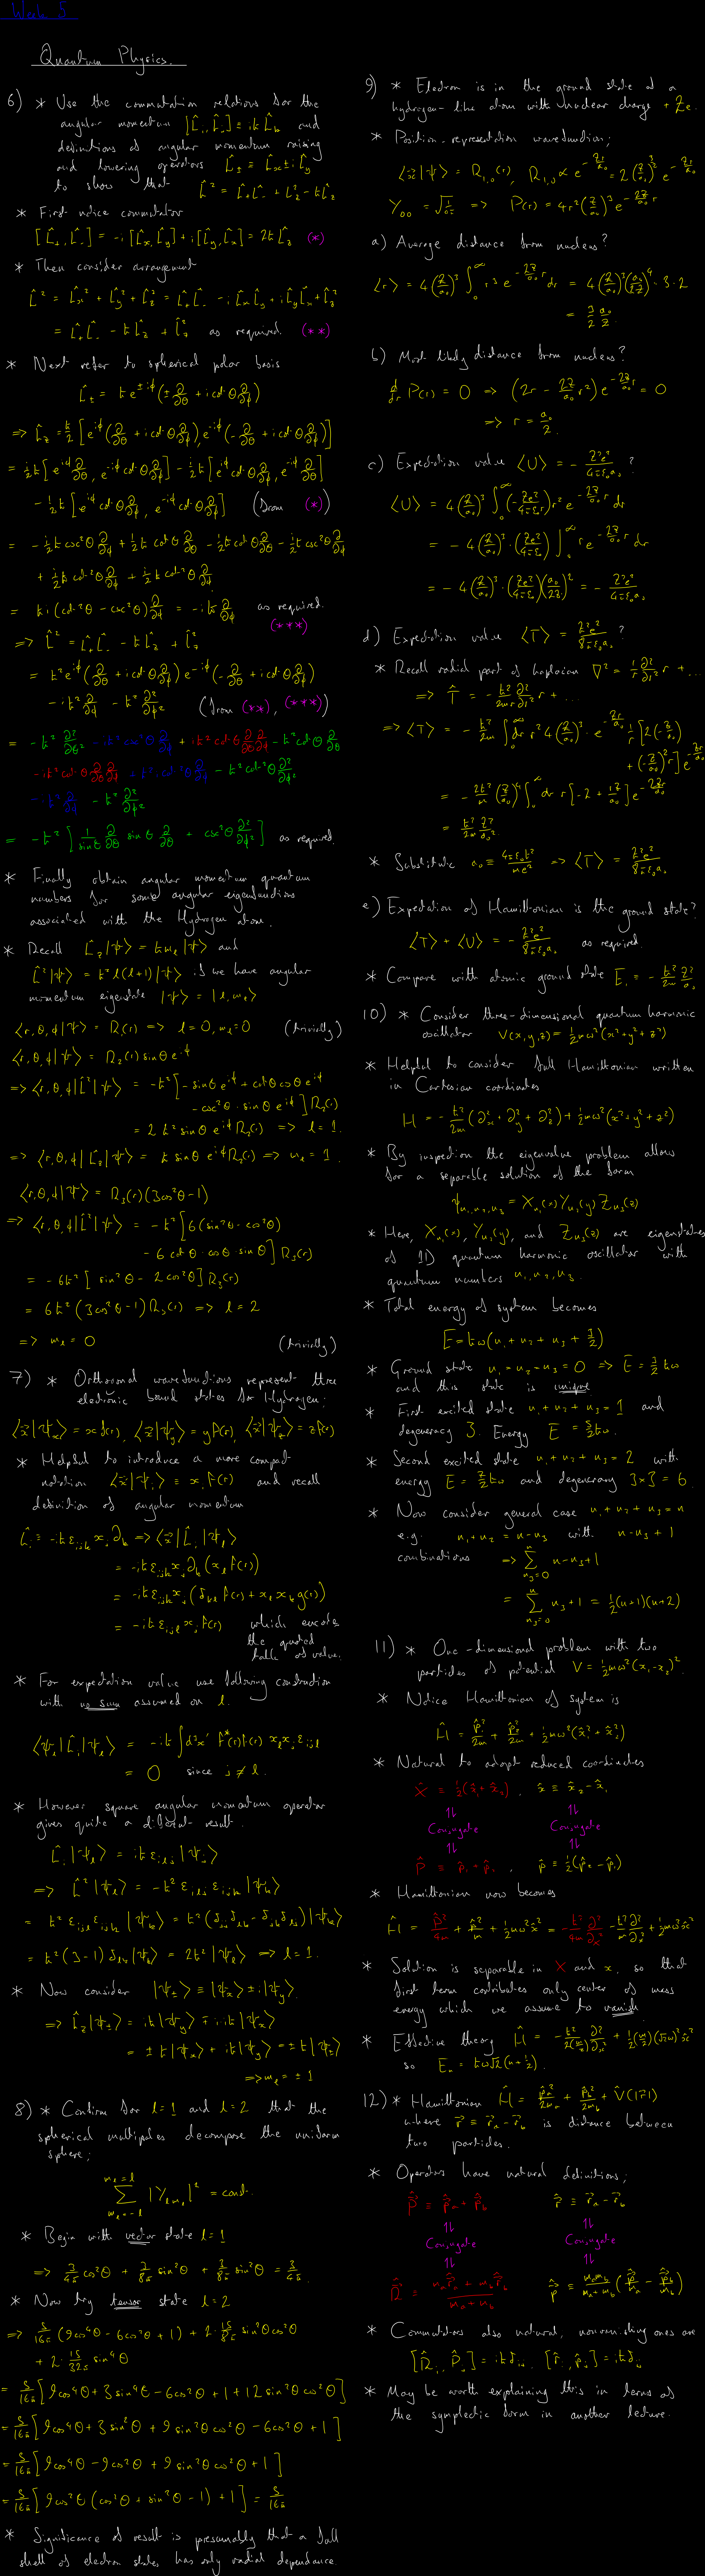 Week 5
Quantum Physics.
6) * Use the commutation relations for the
angular momentum [L̂ᵢ, L̂ⱼ] = iħL̂ₖ and
definitions of angular momentum raising
and lowering operators L̂± ≡ L̂x ± iL̂y
to show that L̂² = L̂₊L̂₋ + L̂z² - ħL̂z
* First notice commutator
[L̂₊, L̂₋] = -i[L̂x, L̂y] + i[L̂y, L̂x] = 2ħL̂z (*)
* Then consider arrangement
L̂² = L̂x² + L̂y² + L̂z² = L̂₊L̂₋ - iL̂yL̂x + iL̂xL̂y + L̂z²
= L̂₊L̂₋ - ħL̂z + L̂z² as required. (**)
* Next refer to spherical polar basis
L̂± = ħe^{±iϕ}(±∂/∂θ + i cot θ ∂/∂ϕ)
⇒ L̂z = ħ/2 [e^{iϕ}(∂/∂θ + i cot θ ∂/∂ϕ), e^{-iϕ}(-∂/∂θ + i cot θ ∂/∂ϕ)]
= ½iħ[e^{iϕ}∂/∂θ, e^{-iϕ}cot θ ∂/∂ϕ] - ½iħ[e^{iϕ}cot θ ∂/∂ϕ, e^{-iϕ}∂/∂θ]
- ½ħ[e^{iϕ}cot θ ∂/∂ϕ, e^{-iϕ}cot θ ∂/∂ϕ] (from (*))
= -½iħ cosec²θ ∂/∂ϕ + ½ħ cot θ ∂/∂θ - ½ħ cot θ ∂/∂θ - ½iħ cosec²θ ∂/∂ϕ
+ ½iħ cot²θ ∂/∂ϕ + ½iħ cot²θ ∂/∂ϕ
= ħi(cot²θ - cosec²θ)∂/∂ϕ = -iħ∂/∂ϕ as required.
(***)
⇒ L̂² = L̂₊L̂₋ - ħL̂z + L̂z²
= ħ²e^{iϕ}(∂/∂θ + i cot θ ∂/∂ϕ)e^{-iϕ}(-∂/∂θ + i cot θ ∂/∂ϕ)
- iħ²∂/∂ϕ - ħ²∂²/∂ϕ² (from (**), (***))
= -ħ²∂²/∂θ² - iħ²cosec²θ ∂/∂ϕ + iħ²cot θ ∂/∂θ ∂/∂ϕ - ħ²cot θ ∂/∂θ
- iħ²cot θ ∂/∂θ ∂/∂ϕ + iħ²cot²θ ∂/∂ϕ - ħ²cot²θ ∂²/∂ϕ²
- iħ²∂/∂ϕ - ħ²∂²/∂ϕ²
= -ħ²[1/sinθ ∂/∂θ sinθ ∂/∂θ + cosec²θ ∂²/∂ϕ²] as required.
* Finally obtain angular momentum quantum
numbers for some angular eigenfunctions
associated with the Hydrogen atom.
* Recall L̂z|ψ⟩ = ħmₗ|ψ⟩ and
L̂²|ψ⟩ = ħ²l(l+1)|ψ⟩ if we have angular
momentum eigenstate |ψ⟩ = |l, mₗ⟩
⟨r,θ,ϕ|ψ⟩ = R(r) ⇒ l=0, mₗ=0 (trivially)
⟨r,θ,ϕ|ψ⟩ = R₂(r) sinθ e^{iϕ}
⇒ ⟨r,θ,ϕ|L̂²|ψ⟩ = -ħ²[-sinθ e^{iϕ} + cotθ cosθ e^{iϕ}
- cosec²θ · sinθ e^{iϕ}]R₂(r)
= 2ħ² sinθ e^{iϕ}R₂(r) ⇒ l=1.
⇒ ⟨r,θ,ϕ|L̂z|ψ⟩ = ħ sinθ e^{iϕ}R₂(r) ⇒ mₗ=1.
⟨r,θ,ϕ|ψ⟩ = R₃(r)(3cos²θ-1)
⇒ ⟨r,θ,ϕ|L̂²|ψ⟩ = -ħ²[6(sin²θ - cos²θ)
- 6 cotθ · cosθ · sinθ]R₃(r)
= -6ħ²[sin²θ - 2cos²θ]R₃(r)
= 6ħ²(3cos²θ-1)R₃(r) ⇒ l=2
⇒ mₗ=0 (trivially)
7) * Orthonormal wavefunctions represent three
electronic bound states for Hydrogen;
⟨x⃗|ψx⟩ = xf(r), ⟨x⃗|ψy⟩ = yf(r), ⟨x⃗|ψz⟩ = zf(r)
* Helpful to introduce a more compact
notation ⟨x⃗|ψᵢ⟩ ≡ xᵢf(r) and recall
definition of angular momentum
L̂ᵢ ≡ -iħεᵢⱼₖxⱼ∂ₖ ⇒ ⟨x⃗|L̂ᵢ|ψₗ⟩
= -iħεᵢⱼₖxⱼ∂ₖ(xₗf(r))
= -iħεᵢⱼₖxⱼ(δₖₗf(r) + xₗxₖg(r))
= -iħεᵢⱼₗxⱼf(r) which encodes
the quoted
table of values.
* For expectation value use following construction
with no sum assumed on l.
⟨ψₗ|L̂ᵢ|ψₗ⟩ = -iħ∫d³x' f*(r)f(r) xₗxⱼεᵢⱼₗ
= 0 since j≠l.
* However square angular momentum operator
gives quite a different result.
L̂ᵢ|ψₗ⟩ = iħεᵢₗⱼ|ψⱼ⟩
⇒ L̂²|ψₗ⟩ = -ħ²εᵢₗⱼεᵢⱼₖ|ψₖ⟩
= ħ²εᵢₗⱼεᵢₖⱼ|ψₖ⟩ = ħ²(δⱼⱼδₗₖ - δⱼₖδₗⱼ)|ψₖ⟩
= ħ²(3-1)δₗₖ|ψₖ⟩ = 2ħ²|ψₗ⟩ ⇒ l=1.
* Now consider |ψ±⟩ ≡ |ψx⟩ ± i|ψy⟩
⇒ L̂z|ψ±⟩ = iħ|ψy⟩ ∓ i·iħ|ψx⟩
= ±ħ|ψx⟩ + iħ|ψy⟩ = ±ħ|ψ±⟩
⇒ mₗ = ±1
8) * Confirm for l=1 and l=2 that the
spherical multiples decompose the uniform
sphere;
Σ_{mₗ=-l}^{mₗ=l} |Y_{l mₗ}|² = const.
* Begin with vector state l=1
⇒ 3/4π cos²θ + 3/8π sin²θ + 3/8π sin²θ = 3/4π.
* Now try tensor state l=2
⇒ 5/16π (9cos⁴θ - 6cos²θ + 1) + 2·15/8π sin²θcos²θ
+ 2·15/32π sin⁴θ
= 5/16π [9cos⁴θ + 3sin⁴θ - 6cos²θ + 1 + 12sin²θcos²θ]
= 5/16π [9cos⁴θ + 3sin²θ + 9sin²θcos²θ - 6cos²θ + 1]
= 5/16π [9cos⁴θ - 9cos²θ + 9sin²θcos²θ + 1]
= 5/16π [9cos²θ(cos²θ + sin²θ - 1) + 1] = 5/16π
* Significance of result is presumably that a full
shell of electron states has only radial dependance
9) * Electron is in the ground state of a
hydrogen-like atom with nuclear charge +Ze.
* Position-representation wavefunction;
⟨x⃗|ψ⟩ = R₁,₀(r), R₁,₀ ∝ e^{-Zr/a₀} = 2(Z/a₀)^{3/2} e^{-Zr/a₀}
Y₀₀ = √(1/4π) ⇒ P(r) = 4r²(Z/a₀)³e^{-2Zr/a₀}
a) Average distance from nucleus?
⟨r⟩ = 4(Z/a₀)³∫₀^∞ r³e^{-2Zr/a₀}dr = 4(Z/a₀)³(a₀/2Z)⁴·3·2
= 3/2 a₀/Z.
b) Most likely distance from nucleus?
d/dr P(r) = 0 ⇒ (2r - 2Z/a₀ r²)e^{-2Zr/a₀} = 0
⇒ r = a₀/Z.
c) Expectation value ⟨U⟩ = -Z²e²/4πε₀a₀?
⟨U⟩ = 4(Z/a₀)³∫₀^∞(-Ze²/4πε₀r)r²e^{-2Zr/a₀}dr
= -4(Z/a₀)³·(Ze²/4πε₀)∫₀^∞ re^{-2Zr/a₀}dr
= -4(Z/a₀)³·(Ze²/4πε₀)(a₀/2Z)² = -Z²e²/4πε₀a₀
d) Expectation value ⟨T⟩ = Z²e²/8πε₀a₀?
* Recall radial part of laplacian ∇² = 1/r ∂²/∂r² r + ...
⇒ T̂ = -ħ²/2mr ∂²/∂r² r + ...
⇒ ⟨T⟩ = -ħ²/2m ∫₀^∞dr r²4(Z/a₀)³·e^{-Zr/a₀} 1/r[2(-Z/a₀)
+ (-Z/a₀)²r]e^{-Zr/a₀}
= -2ħ²/m (Z/a₀)⁴∫₀^∞dr r[-2 + Zr/a₀]e^{-2Zr/a₀}
= ħ²/2m Z²/a₀².
* Substitute a₀ ≡ 4πε₀ħ²/me² ⇒ ⟨T⟩ = Z²e²/8πε₀a₀
e) Expectation of Hamiltonian is the ground state?
⟨T⟩ + ⟨U⟩ = -Z²e²/8πε₀a₀ as required.
* Compare with atomic ground state E₁ = -ħ²/2m Z²/a₀²
10) * Consider three-dimensional quantum harmonic
oscillator V(x,y,z) = ½mω²(x²+y²+z²)
* Helpful to consider full Hamiltonian written
in Cartesian coordinates
H = -ħ²/2m(∂x² + ∂y² + ∂z²) + ½mω²(x²+y²+z²)
* By inspection the eigenvalue problem allows
for a separable solution of the form
ψ_{n₁,n₂,n₃} = X_{n₁}(x)Y_{n₂}(y)Z_{n₃}(z)
* Here, X_{n₁}(x), Y_{n₂}(y), and Z_{n₃}(z) are eigenstates
of 1D quantum harmonic oscillator with
quantum numbers n₁, n₂, n₃.
* Total energy of system becomes
E = ħω(n₁ + n₂ + n₃ + 3/2)
* Ground state n₁ = n₂ = n₃ = 0 ⇒ E = 3/2 ħω
and this state is unique
* First excited state n₁+n₂+n₃ = 1 and
degeneracy 3. Energy E = 5/2 ħω.
* Second excited state n₁+n₂+n₃ = 2 with
energy E = 7/2 ħω and degeneracy 3+3 = 6.
* Now consider general case n₁+n₂+n₃ = n
e.g. n₁+n₂ = n-n₃ with n-n₃+1
combinations ⇒ Σ_{n₃=0}^{n} n-n₃+1
= Σ_{n₃=0}^{n} n₃+1 = ½(n+1)(n+2)
11) * One-dimensional problem with two
particles of potential V = ½mω²(x₁-x₂)².
* Notice Hamiltonian of system is
Ĥ = p̂₁²/2m + p̂₂²/2m + ½mω²(x̂₁²+x̂₂²)
* Natural to adopt reduced coordinates
X̂ ≡ ½(x̂₁+x̂₂), x̂ ≡ x̂₂-x̂₁
⇅ ⇅
Conjugate Conjugate
⇅ ⇅
P̂ ≡ p̂₁+p̂₂, p̂ ≡ ½(p̂₂-p̂₁)
* Hamiltonian now becomes
Ĥ = P̂²/4m + p̂²/m + ½mω²x̂² = -ħ²/4m ∂²/∂X² - ħ²/m ∂²/∂x² + ½mω²x̂²
* Solution is separable in X and x, so that
first term contributes only center of mass
energy which we assume to vanish
* Effective theory Ĥ = -ħ²/2(m/2) ∂²/∂x² + ½(m/2)(√2ω)²x̂²
so Eₙ = ħω√2(n+½).
12) * Hamiltonian Ĥ = p̂a²/2ma + p̂b²/2mb + V̂(|r⃗|)
where r⃗ ≡ r⃗a - r⃗b is distance between
two particles.
* Operators have natural definitions;
P̂ ≡ p̂a + p̂b r̂ ≡ r⃗a - r⃗b
⇅ ⇅
Conjugate Conjugate
⇅ ⇅
R̂ ≡ (ma r̂a + mb r̂b)/(ma+mb) p̂ ≡ ma mb/(ma+mb) (p̂a/ma - p̂b/mb)
* Commutators also natural, nonvanishing ones are
[R̂ᵢ, P̂ⱼ] = iħδᵢⱼ, [r̂ᵢ, p̂ⱼ] = iħδᵢⱼ
* May be worth explaining this in terms of
the symplectic form in another lecture.